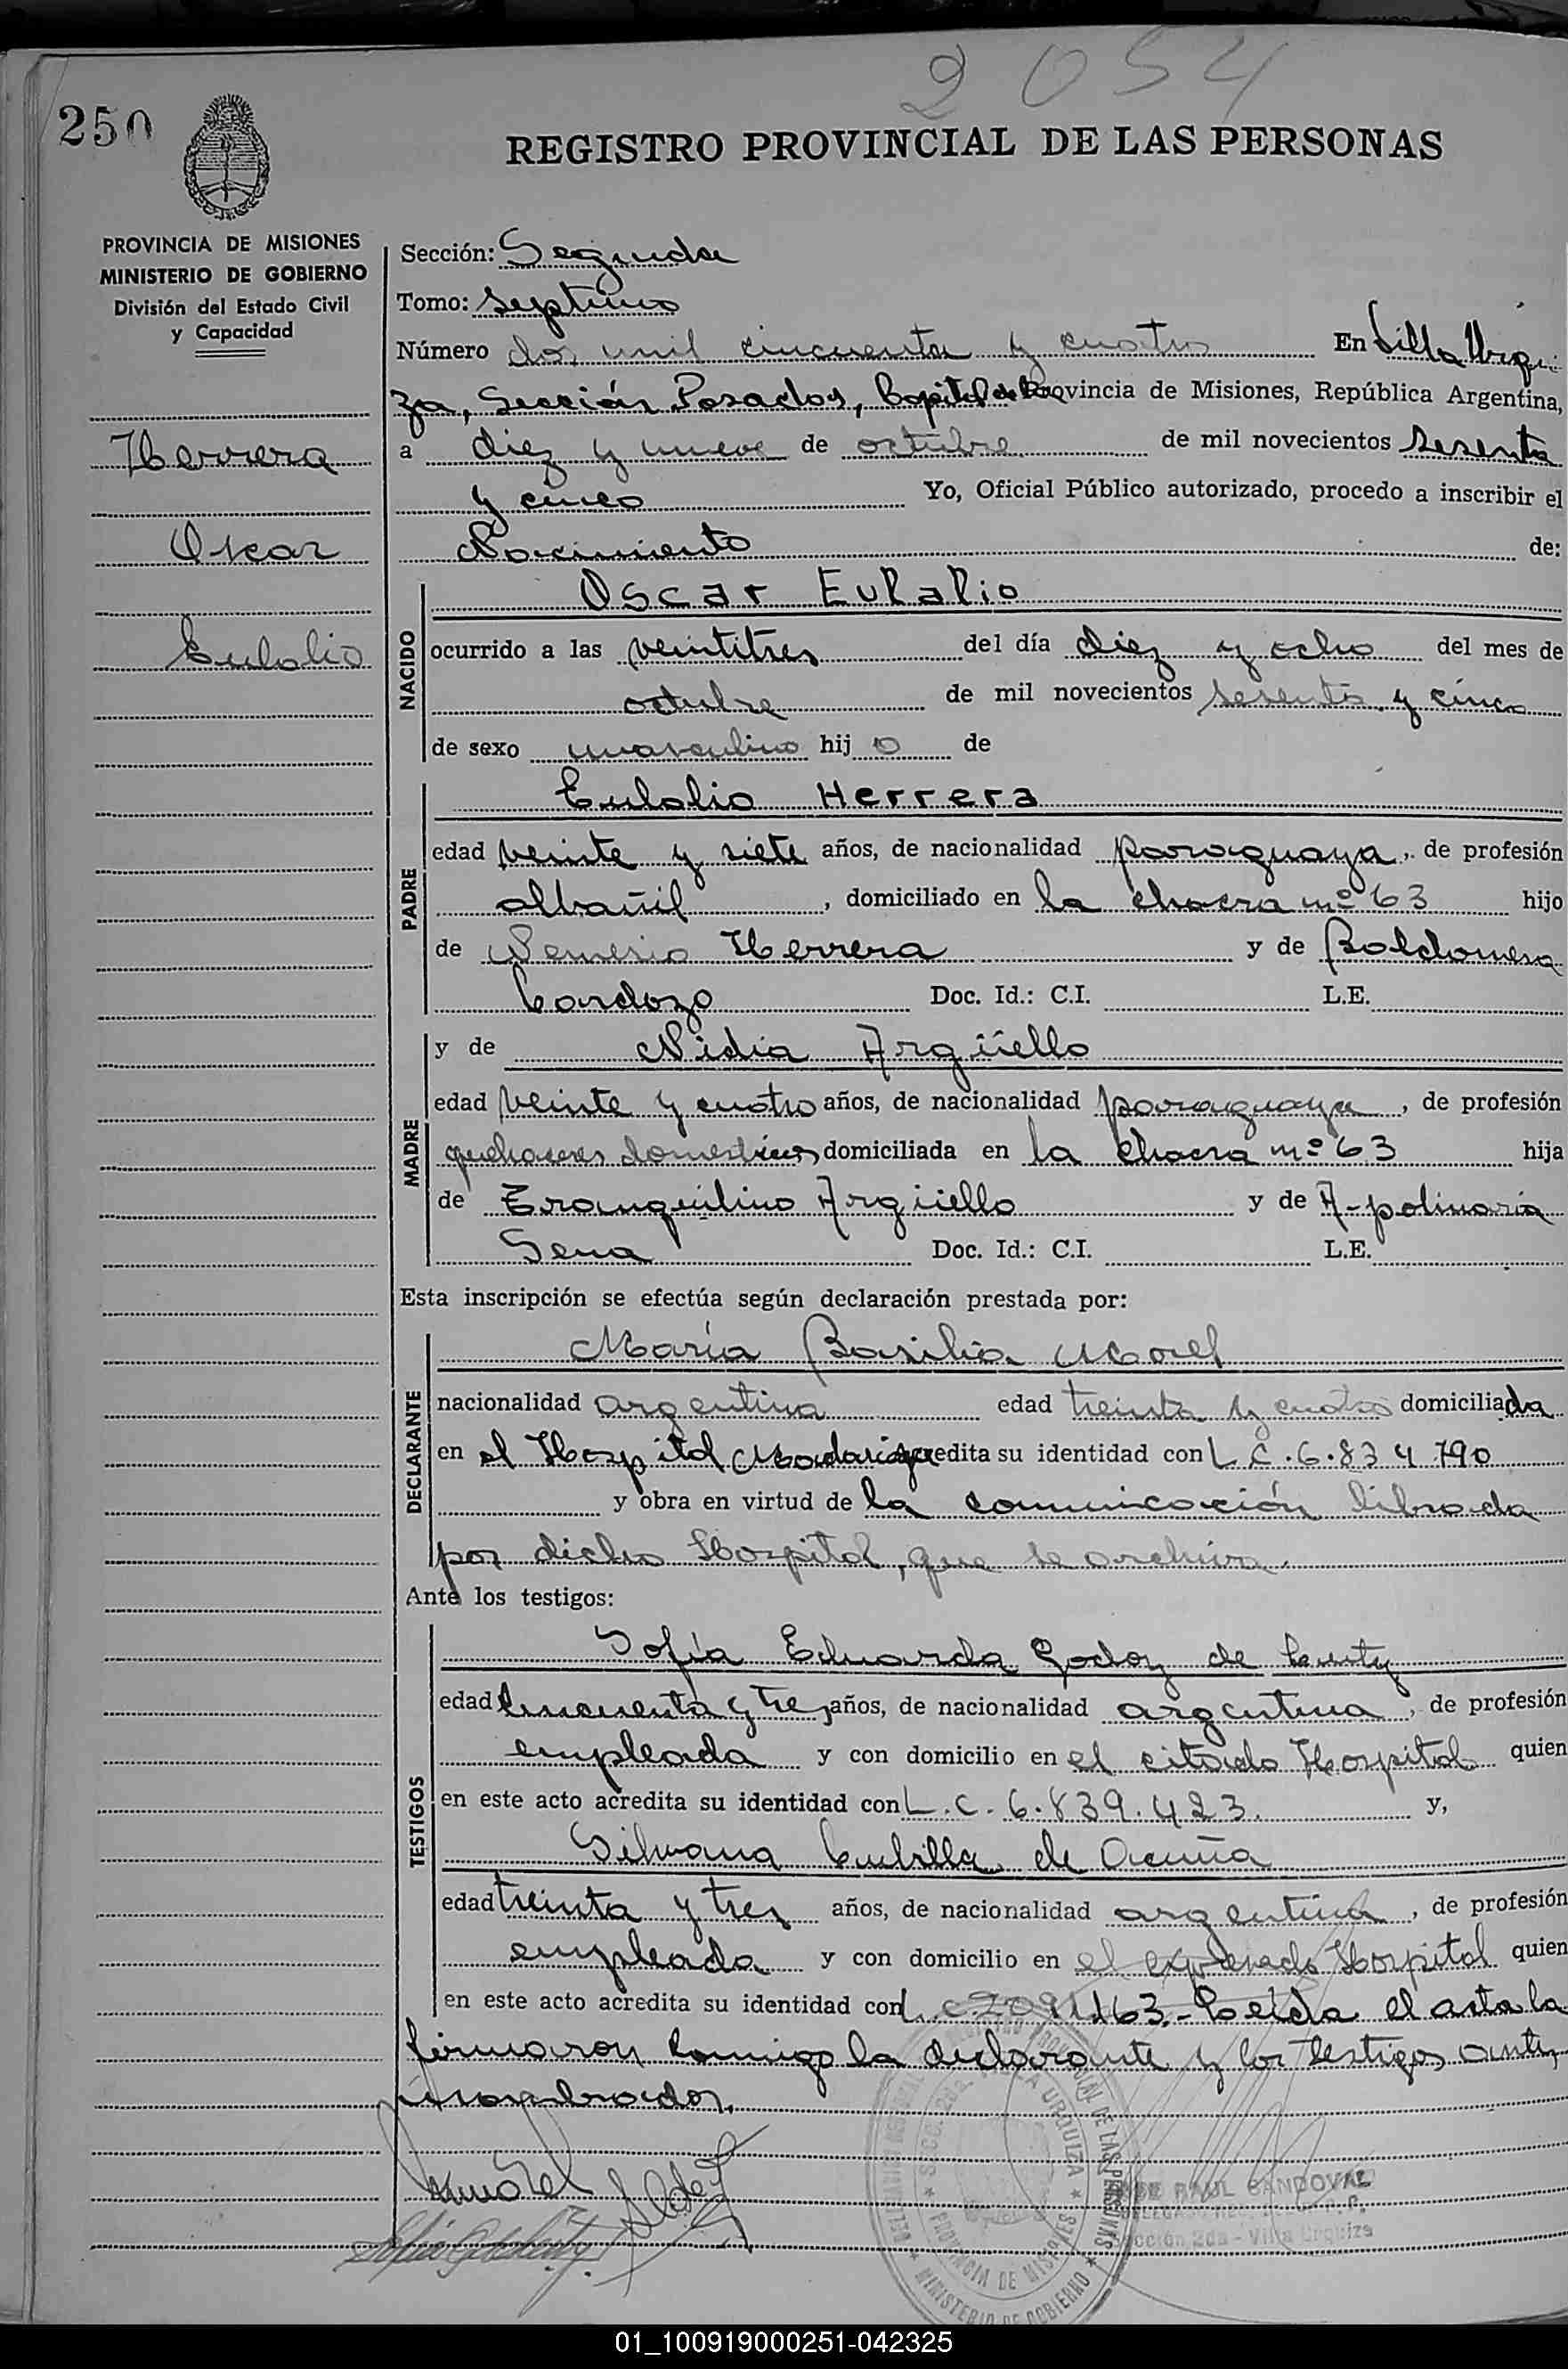 2054
250
REGISTRO PROVINCIAL DE LAS PERSONAS
PROVINCIA DE MISIONES
MINISTERIO DE GOBIERNO
División del Estado Civil
y Capacidad
Herrera
Oscar
Eulalio
Sección: Segunda
Tomo: Septimo
Número dos mil cincuenta y cuatro En Villa Urqui-
za, Sección Posadas, Capital de la Provincia de Misiones, República Argentina,
a diez y nueve de octubre de mil novecientos sesenta
y cinco Yo, Oficial Público autorizado, procedo a inscribir el
Nacimiento de:
NACIDO
Oscar Eulalio
ocurrido a las veintitres del día diez y ocho del mes de
octubre de mil novecientos sesenta y cinco
de sexo masculino hijo de
PADRE
Eulalio Herrera
edad veinte y siete años, de nacionalidad paraguaya, de profesión
albañil, domiciliado en la chacra nº 63 hijo
de Nemesio Herrera y de Baldomera
Cardozo Doc. Id.: C.I. L.E.
MADRE
y de Nidia Argüello
edad veinte y cuatro años, de nacionalidad paraguaya, de profesión
quehaceres domesticos domiciliada en la chacra nº 63 hija
de Tranquilino Argüello y de Apolinaria
Sena Doc. Id.: C.I. L.E.
Esta inscripción se efectúa según declaración prestada por:
DECLARANTE
María Basilia Morel
nacionalidad argentina edad treinta y cuatro domiciliada
en el Hospital Madariaga acredita su identidad con L.C. 6.834.790
y obra en virtud de la comunicación librada
por dicho Hospital, que se archiva.
Ante los testigos:
TESTIGOS
Sofía Eduarda Godoy de
edad cincuenta y tres años, de nacionalidad argentina, de profesión
empleada y con domicilio en el citado Hospital quien
en este acto acredita su identidad con L.C. 6.839.423. y,
Silvana Cubilla de Acuña
edad treinta y tres años, de nacionalidad argentina, de profesión
empleada y con domicilio en el expresado Hospital quien
en este acto acredita su identidad con L.C. Leída el acta la
firmaron conmigo la declarante y los testigos ante
nombrados.
RAUL SANDOVAL
Sección 2da - Villa Urquiza
PROVINCIA DE MISIONES
MINISTERIO DE GOBIERNO
01_100919000251-042325